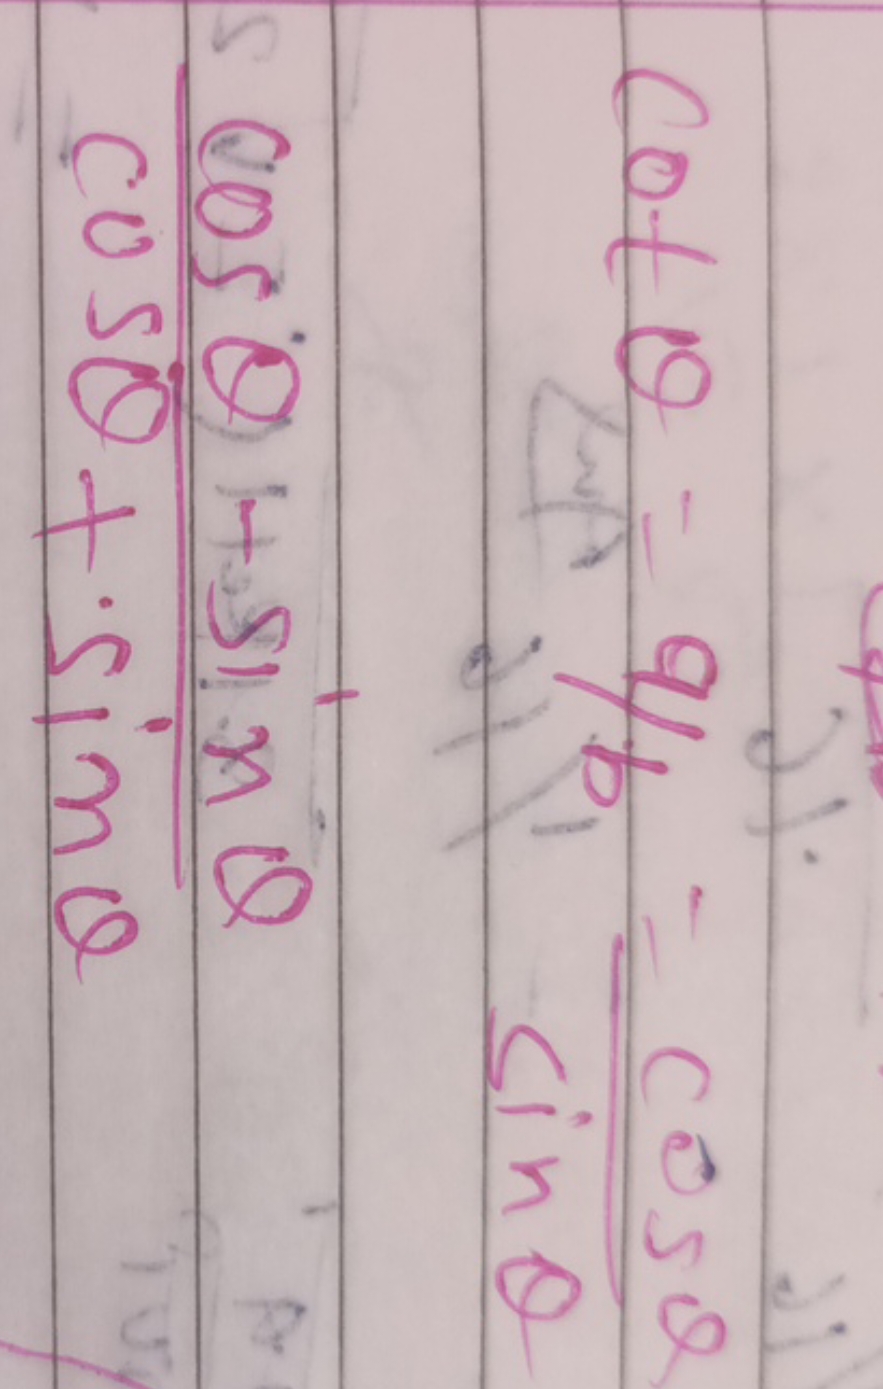 cot θ = a/b = cos θ
sin θ
cos θ - sin θ
cos θ + sin θ